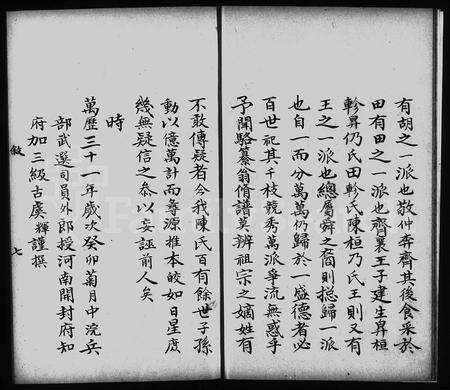 有胡之一派也敬仲奔齊其後食采於
田有田之一派也齊襄王子建生昇桓
軫昇仍氏田軫氏陳桓乃氏王則又有
王之一派也總屬舜之裔則捴歸一派
也自一而分萬萬仍歸於一盛德者必
百世祀其千枝競秀萬派爭流無惑乎
予聞駱纂翁僭譜莫辨祖宗之嫡姓有
不敢傳疑者今我陳氏百有餘世子孫
動以億萬計而尋源推本皎如日星庶
幾無疑信之叅以妄誣前人矣
時
萬歷三十一年歲次癸卯菊月中浣兵
部武選司員外郎授河南開封府知
府加三級古虞輝謹撰
敘
七